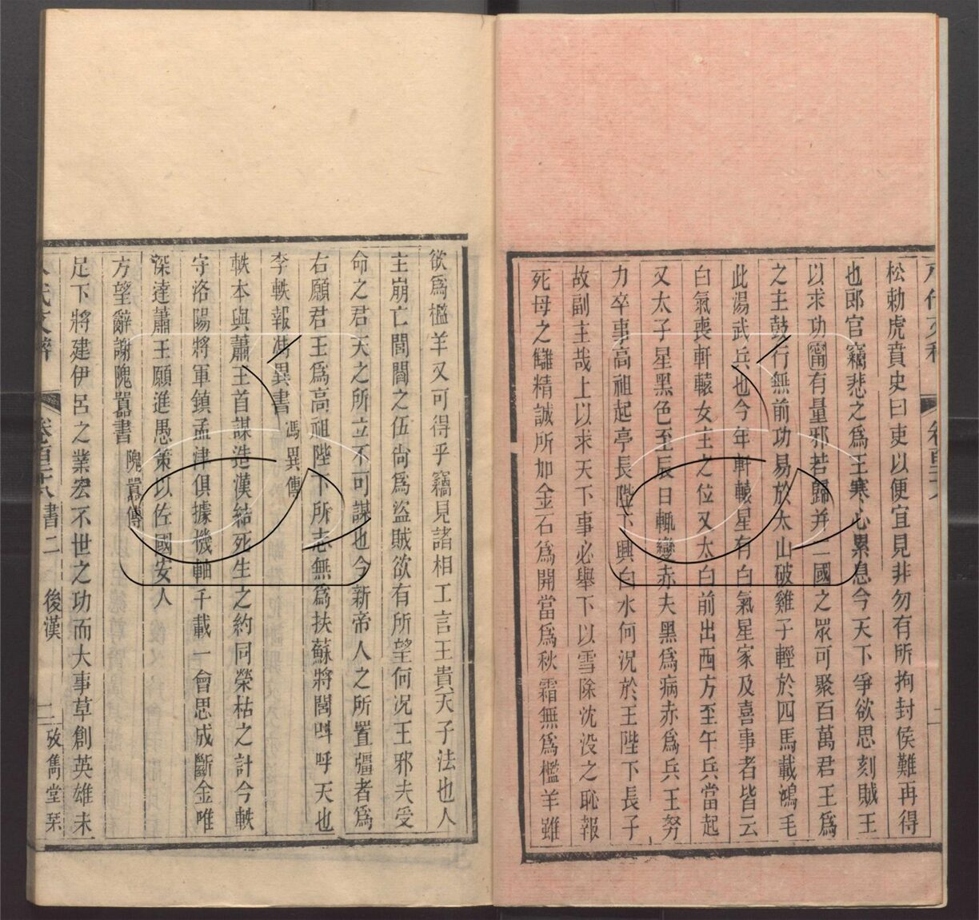 松勅虎賁史曰吏以便宜見非勿有所拘封侯難再得
也郎官竊悲之為王寒心累息今天下爭欲思刻賊王
以求功甯有量邪若歸并二國之眾可聚百萬君王為
之主鼓行無前功易於太山破雞子輕於四馬載鴻毛
此湯武兵也今年軒轅星有白氣星家及喜事者皆云
白氣喪軒轅女主之位又太白前出西方至午兵當起
又太子星黑色至辰日輒變赤夫黑為病赤為兵王努
力卒事高祖起亭長陛下興白水何況於王陛下長子
故副主哉上以求天下事必舉下以雪除沈没之恥報
死母之讎精誠所加金石為開當為秋霜無為檻羊雖
欲為檻羊又可得乎竊見諸相工言王貴天子法也人
主崩亡閭閻之伍尚為盜賊欲有所望何况王邪夫受
命之君天之所立不可謀也今新帝人之所置彊者為
右願君王為高祖陛下所志無為扶蘇將閭呌呼天也
李軼報馮異書 馮異傳
軼本與蕭王首謀造漢結死生之約同榮枯之計今軼
守洛陽將軍鎮孟津俱據機軸千載一會思成斷金唯
深達蕭王願進愚策以佐國安人
方望辭謝隗囂書 隗囂傳
足下將建伊呂之業宏不世之功而大事草創英雄未
八代文粹 卷百二十六 書二 後漢 二 攷雋堂栞